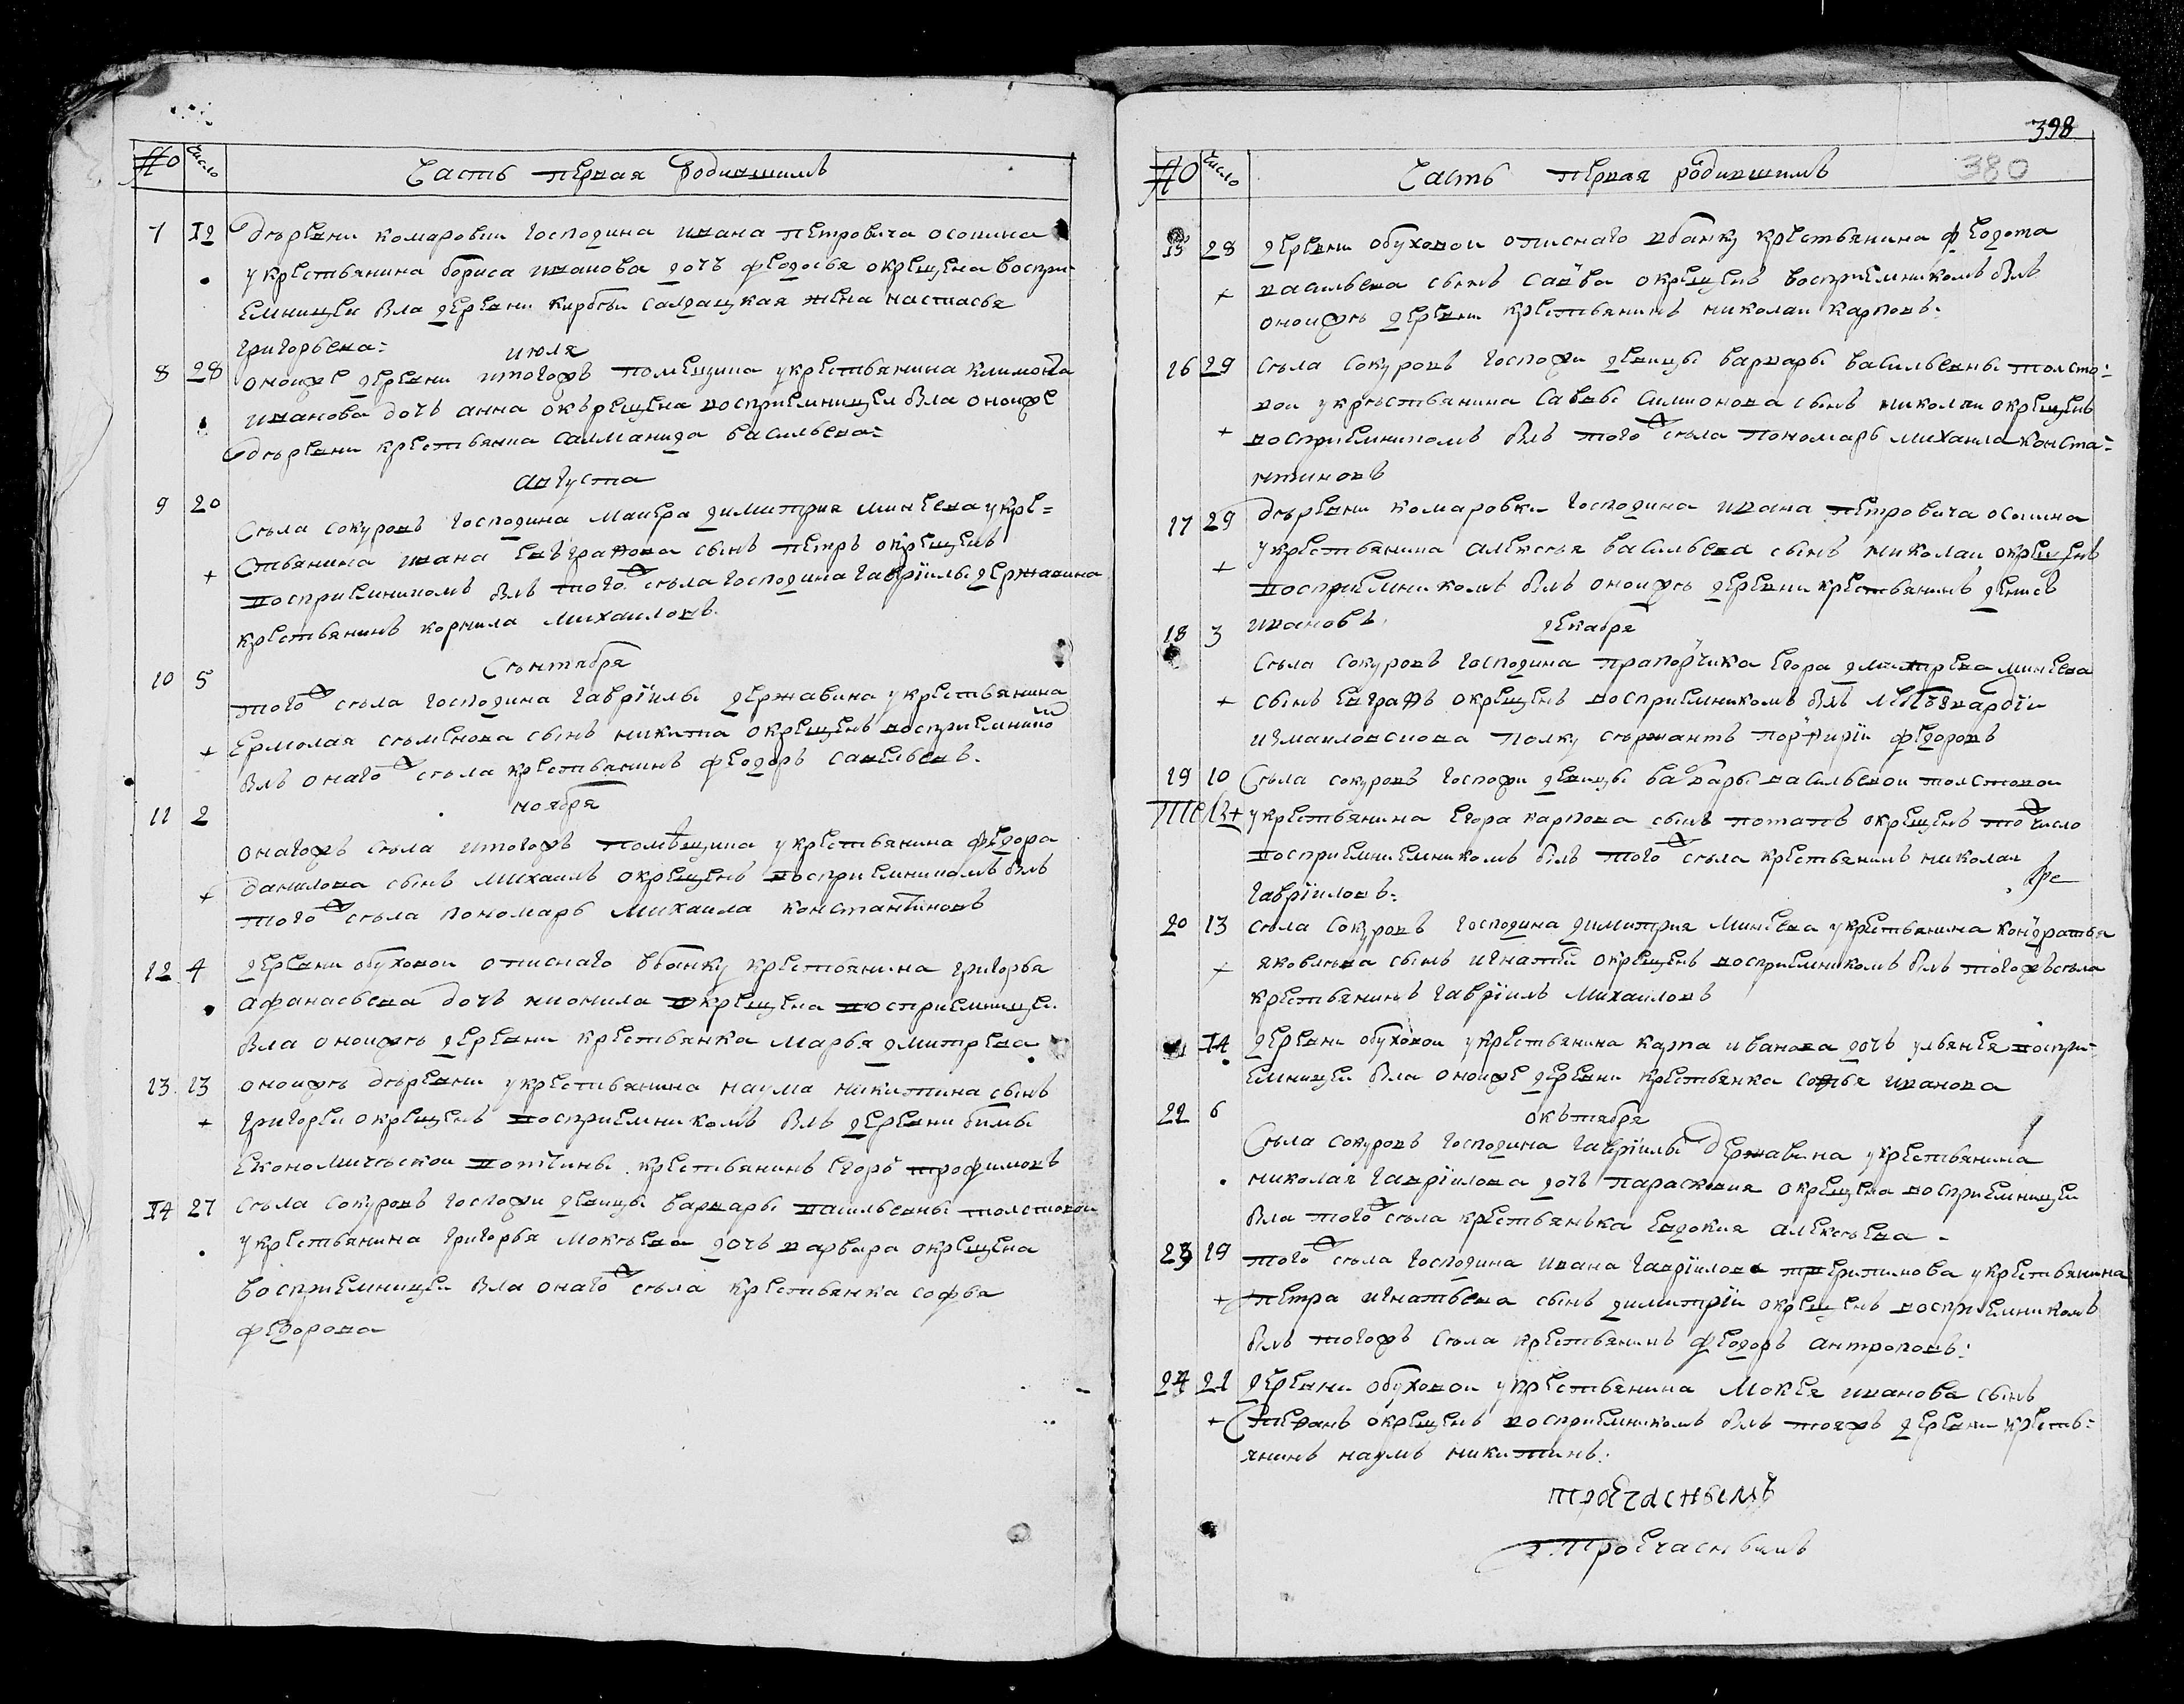 № число Часть первая родившимъ
7 12 дѣревни комаровки господина ивана петровича осокина
укрестьянина бориса иванова дочь феодосья окрещена воспри-
емницеи была деревни кирбѣи салдацкая жена настасья
григорьева:
июля
8 28 оноиже деревни итогожъ помещика укрестьянина климонта
иванова дочь анна окърещена восприемницеи была оноиже
дѣревни крестьянка салманида васильева:
августа
9 20
Сѣла сокуровъ господина маиера димитрия минѣева укре=
стьянина ивана евъграфова сынъ петръ окрещенъ
+ восприемникомъ былъ того ж сѣла господина гаврïилы державина
крестьянинъ корнила михаиловъ.
Сѣнтября
10 5
того ж сѣла господина гаврïилы державина укрестьянина
+ Ермолая сѣменова сынъ никита окрещенъ восприемнико
былъ онаго ж сѣла крестьянинъ феодоръ савельевъ.
ноября
11 2
онагожъ сѣла итогожъ помѣщика укрестьянина федора
+ данилова сынъ михаилъ окрещенъ восприемникомъ былъ
того ж сѣла пономарь михаила константиновъ
12 4 деревни обуховои описнаго вбанку крестьянина григорья
афанасьева дочь нионила окрещена восприемницеи
была оноижъ деревни крестьянка марья дмитрева
13 13 оноижъ дѣревни укрестьянина наума никитина сынъ
+ григореи окрещенъ восприемникомъ былъ деревни бимы
економичѣскои вотчины крестьянинъ егоръ трофимовъ
14 27 сѣла сокуровъ госпожи девицы варвары васильевны толстовои
укрестьянина григорья моксѣева дочь варвара окрещена
восприемницеи была онаго ж сѣла крестьянка софья
федорова
398
380
№ число Часть первая родившимъ
15 28 деревни обуховои описнаго вбанку крестьянина феодота
+ васильева сынъ савва окрещенъ восприемникомъ былъ
оноижъ деревни крестьянинъ николаи карповъ.
16 29 сѣла сокуровъ госпожи девицы варвары васильевны толсто=
вои укрѣстьянина саввы симионова сынъ николаи окрещенъ
+ восприемникомъ былъ того ж сѣла пономарь михаила конста=
нтиновъ
17 29 дѣревни комаровки господина ивана петровича осокина
укрестьянина алексѣя васильева сынъ николаи окрещенъ
+ восприемникомъ былъ оноижъ деревни крестьянинъ денисъ
ивановъ.
декабря
18 3
Сѣла сокуровъ господина прапорчика егора дмитрева минѣева
+ сынъ евграфъ окрещенъ восприемникомъ былъ леибъгвардïи
измаиловскова полку сѣржантъ порфирïи федоровъ
19 10 Сѣла сокуровъ госпожи девицы варвары васильевои толстова
+ укрестьянина егора карпова сынъ потапъ окрещенъ то ж число
восприемниемникомъ былъ того ж сѣла крестьянинъ николаи
гаврïиловъ:
20 13 сѣла сокуровъ господина димитрия минѣева укрестьянина кондратья
+ яковлева сынъ игнатïи окрещенъ восприемникомъ былъ тогожъ сѣла
крестьянинъ гаврïилъ михаиловъ
14 деревни обуховои укрестьянина карпа иванова дочь ульянея воспри-
емницеи была оноиже деревни крестьянка софья иванова
22 6 октября
Сѣла сокуровъ господина гаврïилы державина укрестьянина
николая гаврïилова дочь парасковия окрещена восприемницеи
была того ж сѣла крестьянька евдокия алексѣева
23 19 того ж сѣла господина ивана гаврïилова укрестьянина
+ петра игнатьева сынъ димитрïи окрещенъ восприемникомъ
былъ тогожъ сѣла крестьянинъ феодоръ антроповъ.
24 21 деревни обуховои укрестьянина мокея иванова сынъ
+ стеѳанъ окрещенъ восприемникомъ былъ тояжъ деревни кресть-
янинъ наумъ никитинъ.
троечаснымъ
троечаснымъ